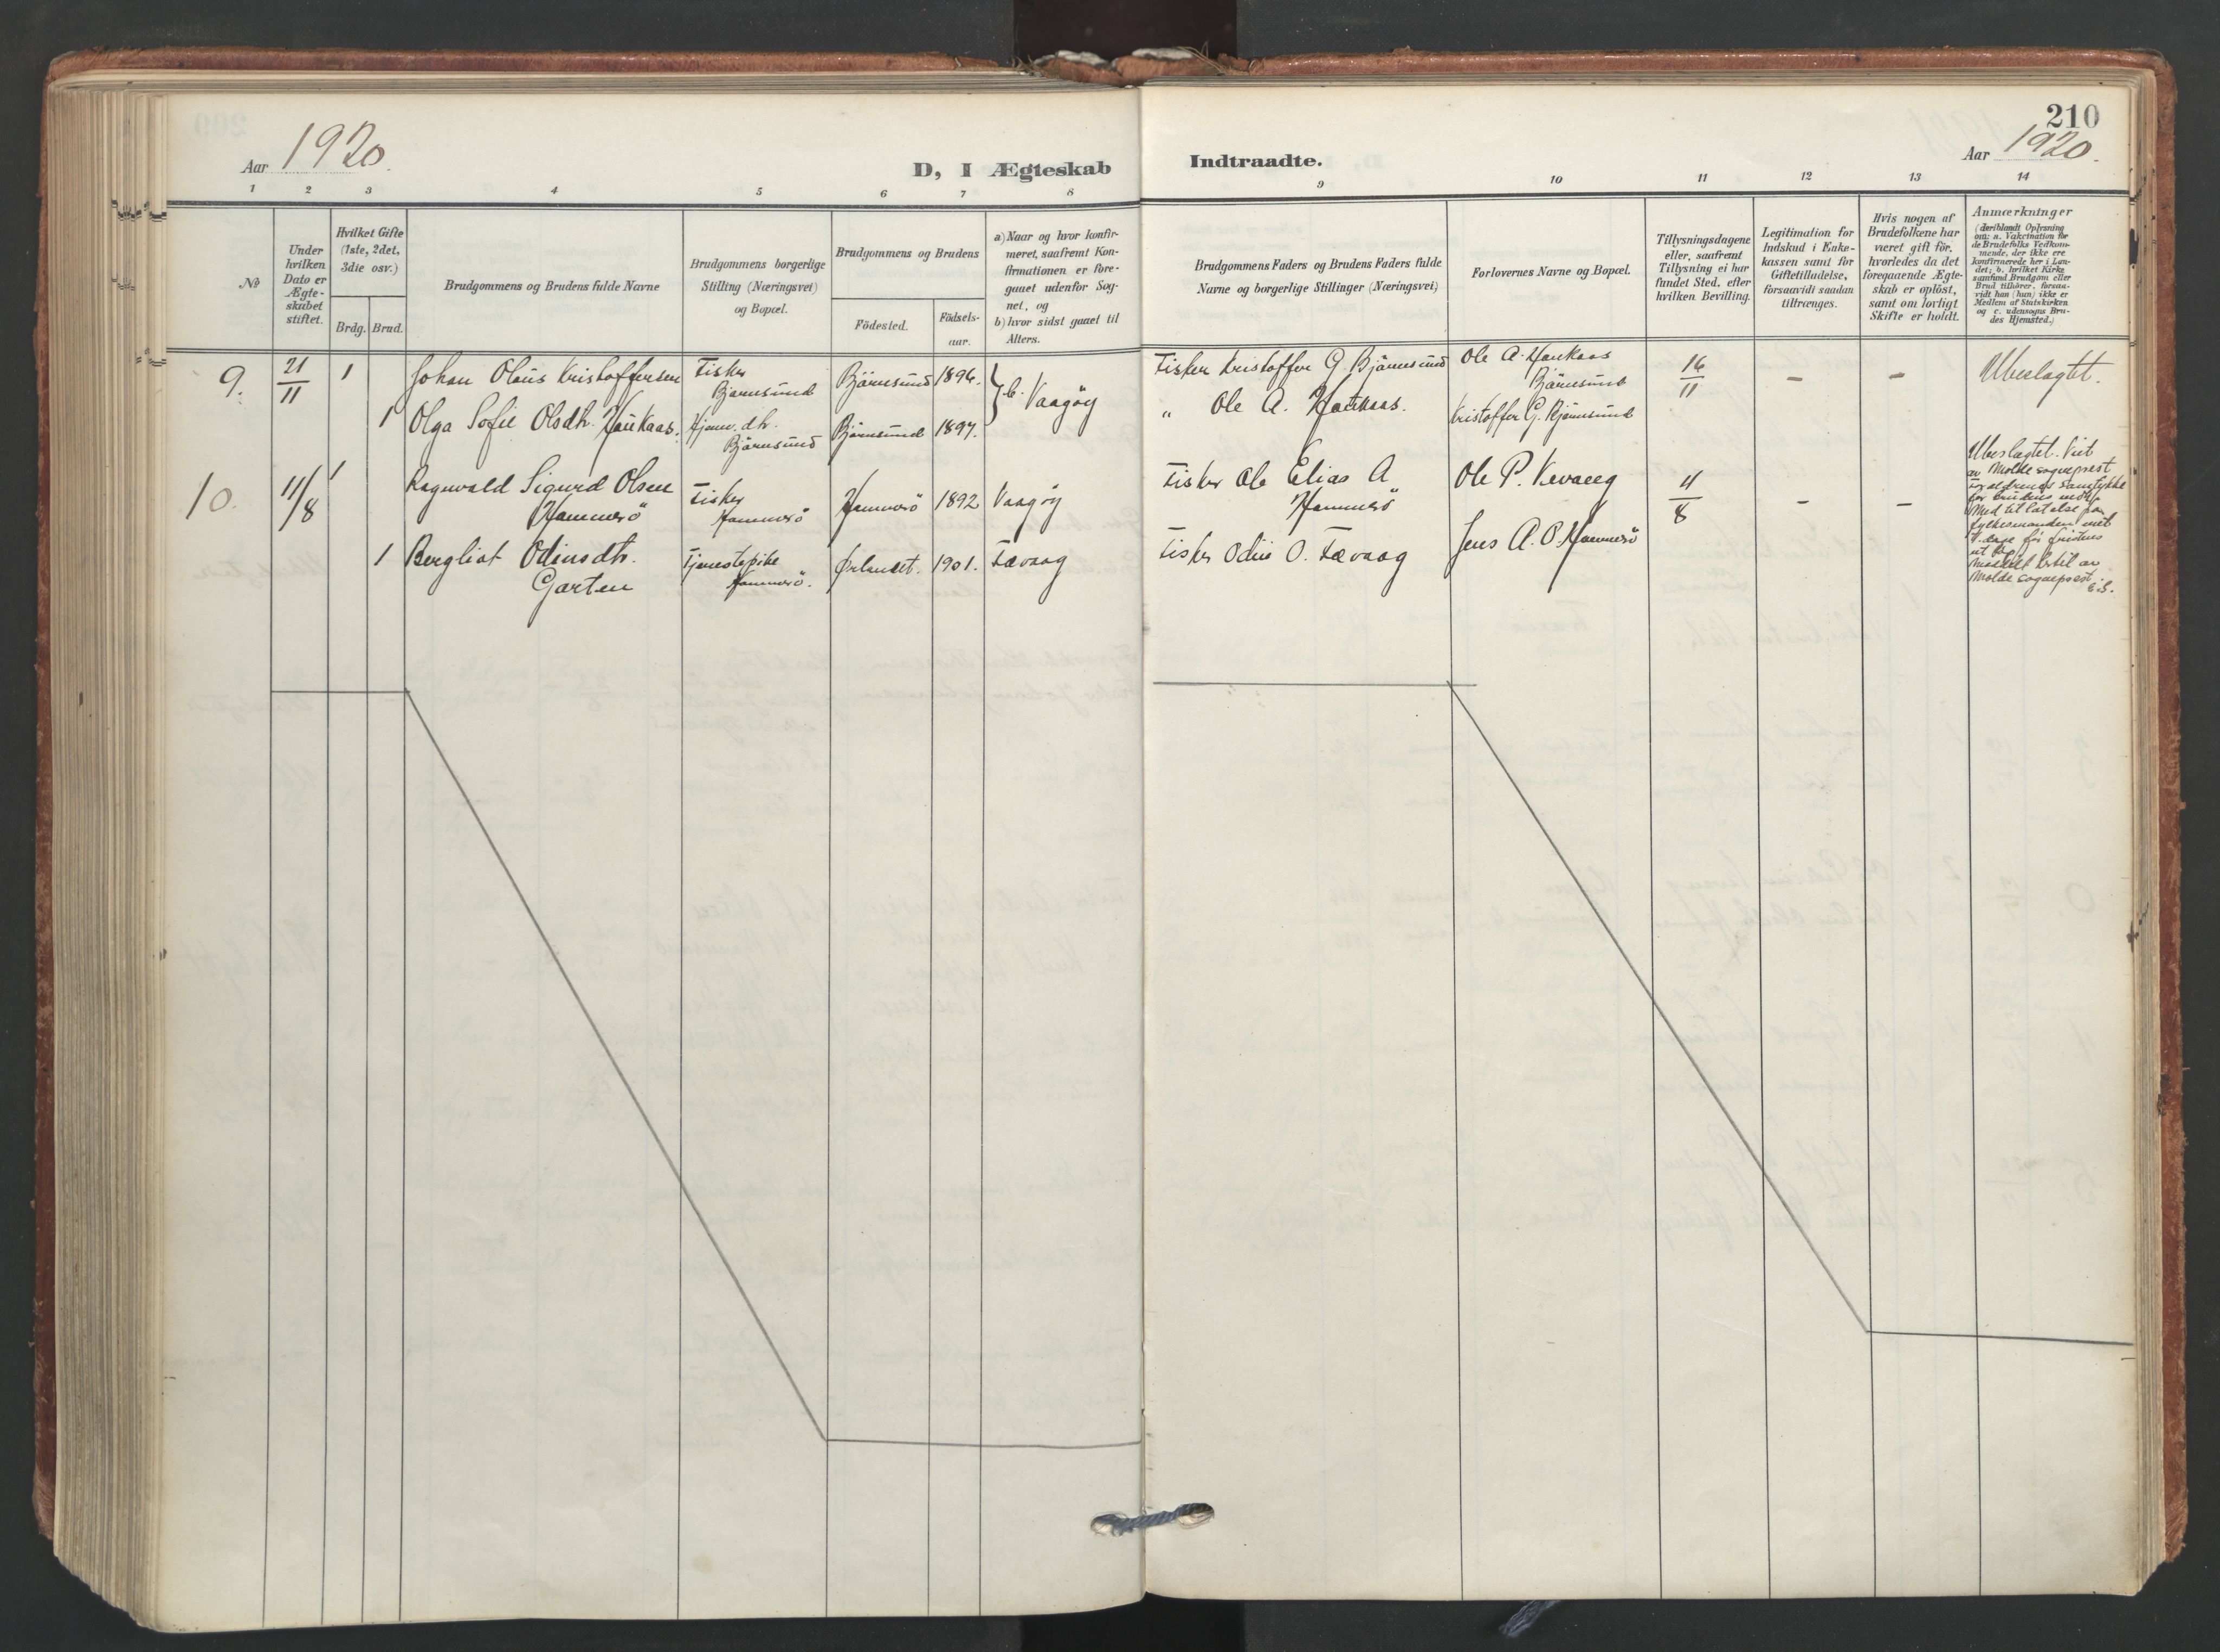 210
Aar 1920.
D, I Ægteskab
Indtraadte.
Aar 1920.
1 2 3 4 5 6 7 8 9 10 11 12 13 14
No
Under
hvilken
Dato er
Ægte-
skabet
stiftet.
Hvilket Gifte
(1ste, 2det,
3die osv.)
Brdg. Brud.
Brudgommens og Brudens fulde Navne
Brudgommens borgerlige
Stilling (Næringsvei)
og Bopæl.
Brudgommens og Brudens
Födested.
Födsels-
aar.
a) Naar og hvor konfir-
meret, saafremt Kon-
firmationen er fore-
gaaet udenfor Sog-
net, og
b) hvor sidst gaaet til
Alters.
Brudgommens Faders og Brudens Faders fulde
Navne og borgerlige Stillinger (Næringsvei)
Forlovernes Navne og Bopæl.
Tillysningsdagene
eller, saafremt
Tillysning ei har
fundet Sted, efter
hvilken Bevilling.
Legitimation for
Indskud i Enke-
kassen samt for
Giftetilladelse,
forsaavidt saadan
tiltrænges.
Hvis nogen af
Brudefolkene har
været gift för,
hvorledes da det
foregaaende Ægte-
skab er oplöst,
samt om lovligt
Skifte er holdt.
Anmærkninger
(deriblandt Oplysning
om: a. Vakcination for
de Brudefolks Vedkom-
mende, der ikke ere
konfirmerede her i Lan-
det; b. hvilket Kirke-
samfund Brudgom eller
Brud tilhörer, forsaa-
vidt han (hun) ikke er
Medlem af Statskirken
og c. udensogns Bru-
des Hjemsted.)
9. 21/11 1 Johan Olaus Kristoffersen
Fisker
Bjørnsund
Bjørnsund 1896.
b. Vaagøy
Fisker Kristoffer G. Bjørnsund
Ole A. Haukaas
Bjørnsund
16/11 – – Ubeslægtet.
1 Olga Sofie Olsdtr. Haukaas.
Hjem. dtr.
Bjørnsund
Bjørnsund 1897.
" Ole A. Haukaas.
Kristoffer G. Bjørnsund
10. 11/8 1 Ragnvald Sigurd Olsen
Hammerö
Fisker
Hammerö
Hammerö 1892 Vaagöy
Fisker Ole Elias A
Hammerö
Ole P.
4/8 – –
1 Bergliot Odinsdtr.
Garten
Tjenestepike
Hammerö.
Ørlandet. 1901. Fævaag
Fisker Odin O. Fævaag
Jens A. P. Hammerö
Ubeslægtet. Viet
av Molde sogneprest
Forældrenes samtykke
for brudens
Med tillatelse fra
fylkesmanden viet
dage før fristens
utløp
meddelt av
Molde sogneprest.